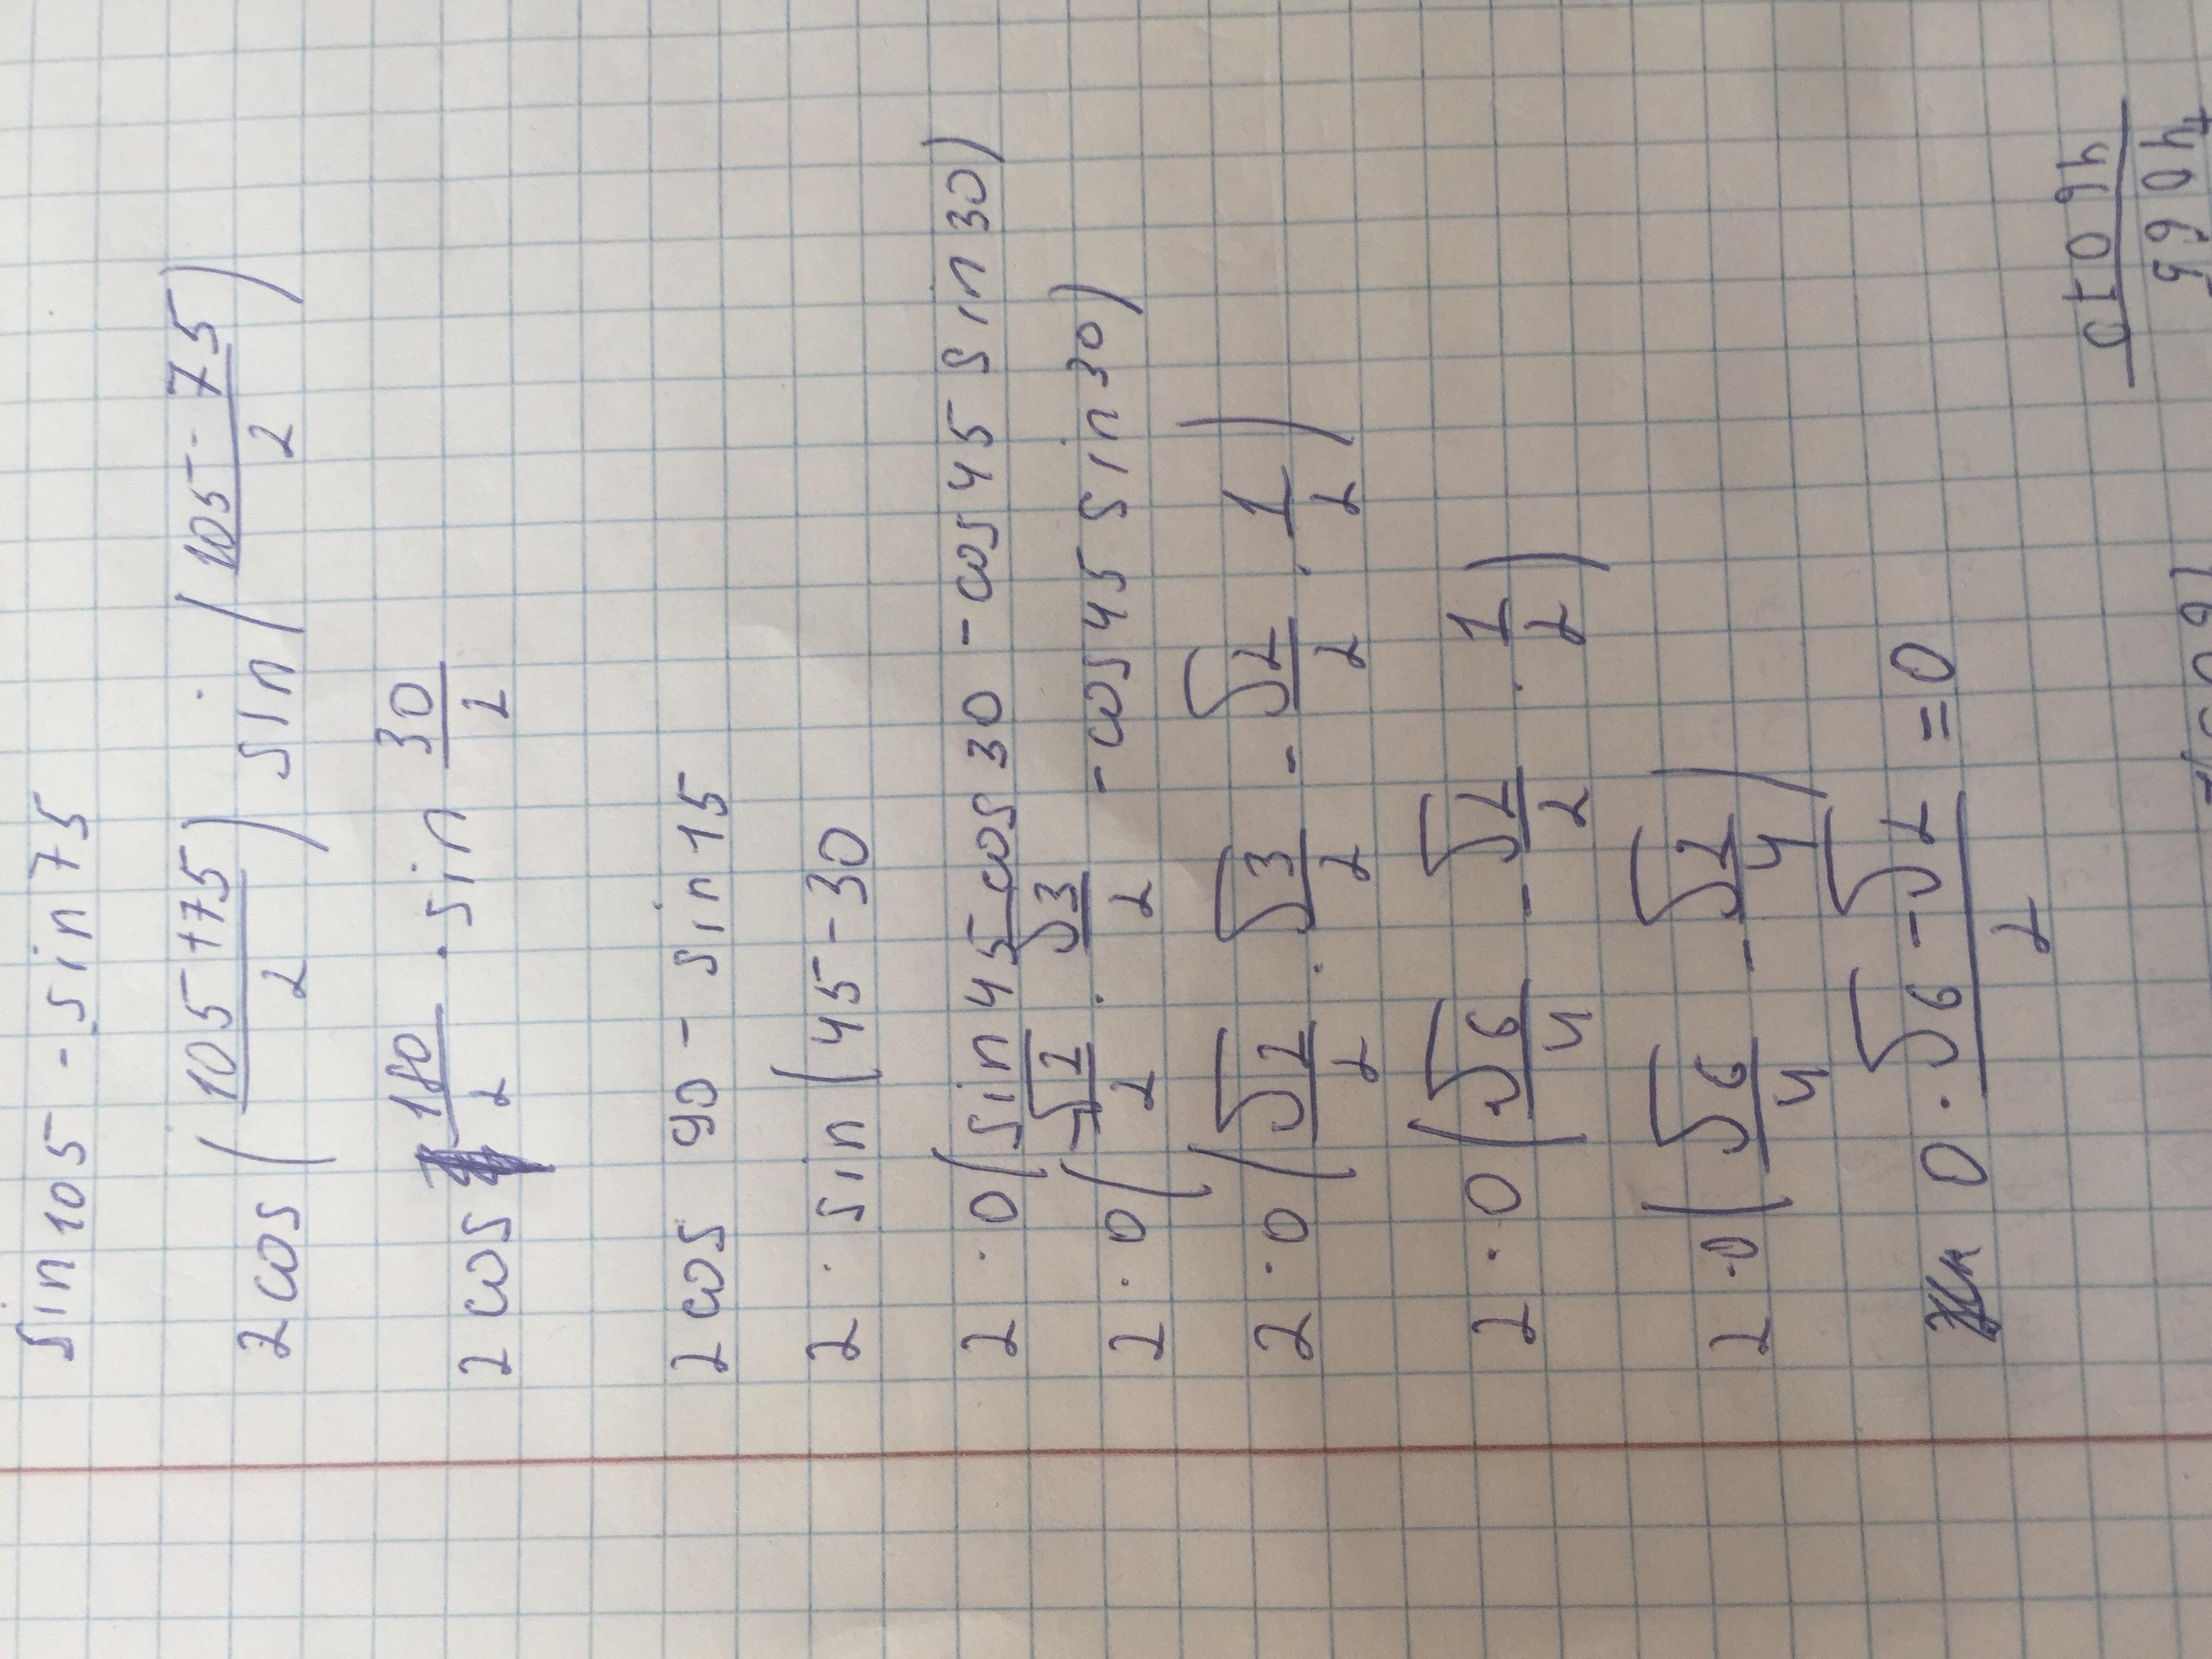 sin105 - sin75
2cos (105+75/2) sin (105-75/2)
2cos 180/2 · sin 30/2
2cos 90 - sin15
2 · sin (45-30
2 · 0 (sin45cos30 - cos45 sin30)
2 · 0 (√2/2 · √3/2 - cos45 sin30)
2 · 0 (√2/2 · √3/2 - √2/2 · 1/2)
2 · 0 (√6/4 - √2/2 · 1/2)
2 · 0 (√6/4 - √2/4)
0 · √6-√2/2 = 0